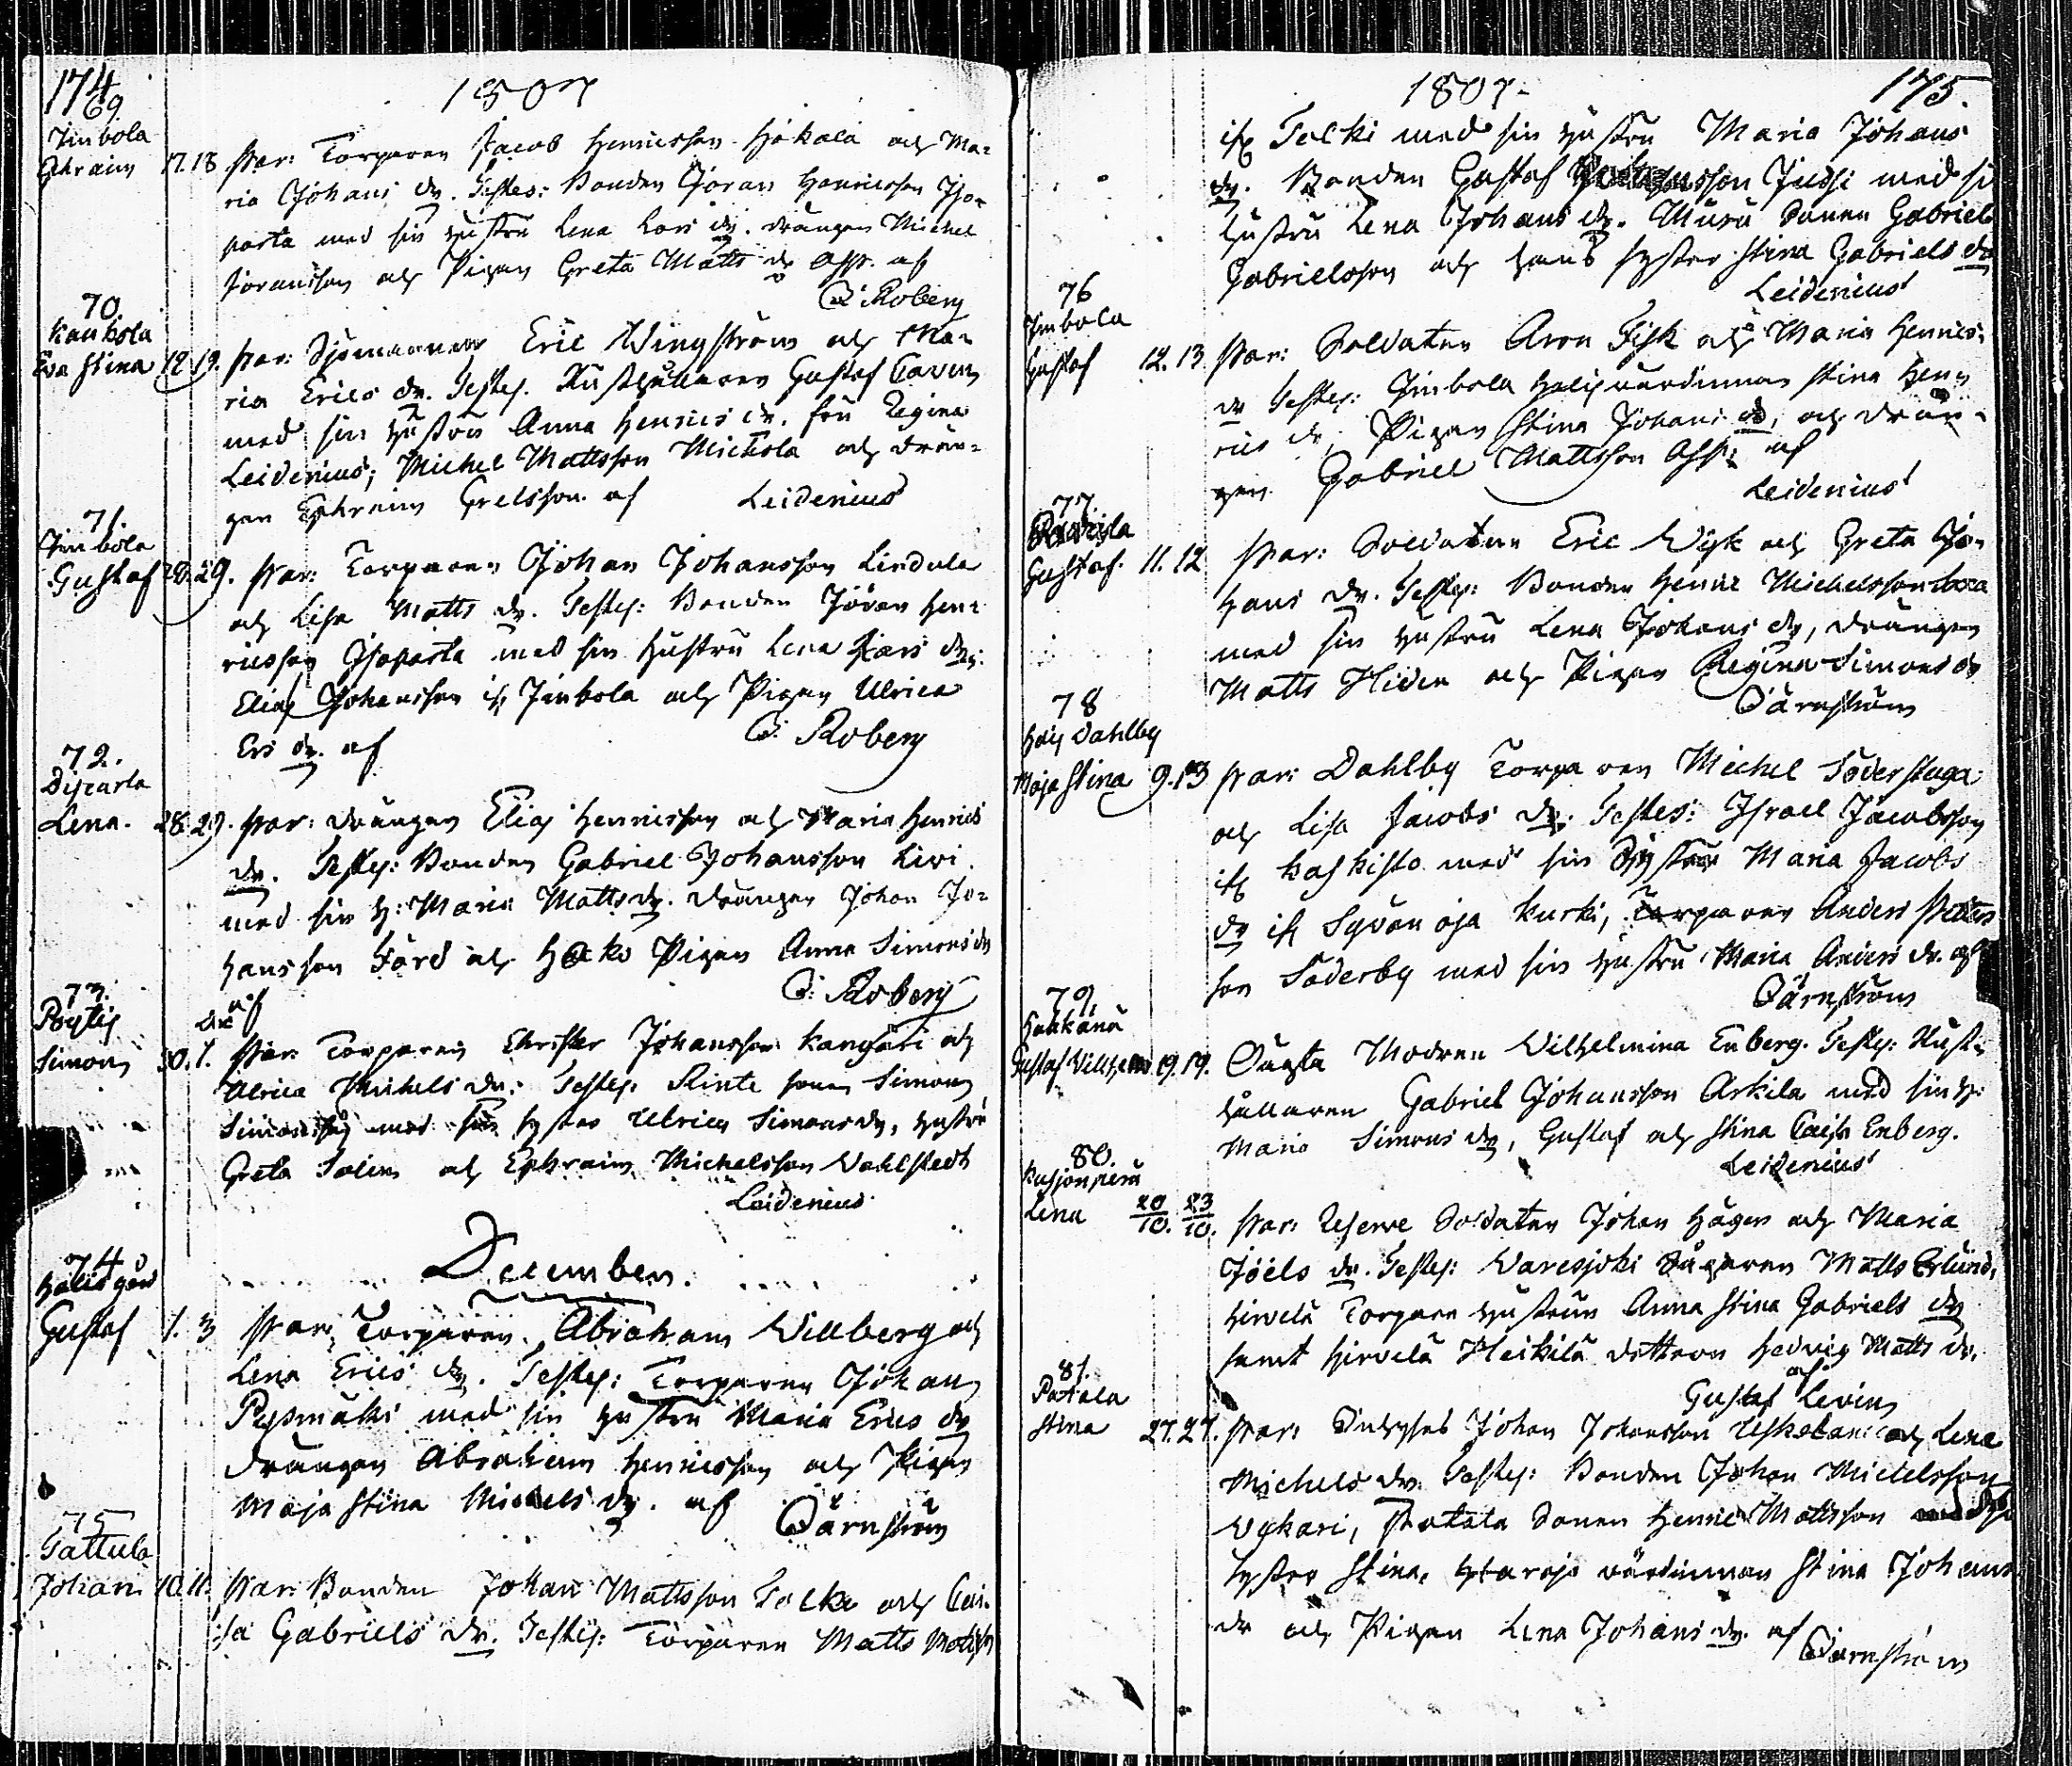 174
1807
69.
Jmbola
Ephraim 17. 18 Par: Torparen Jacob Henricsson Hjokala och Ma=
ria Johans dr. Testes: Bonden Göran Henricsson Iso=
parta med sin hustru Lena Lars dr. drängen Michel
Göransson och Pigan Greta Matts dr Ass. af
C: Roberg
70.
Kaukola
Eva Stina 12 19. Par: Sjömannen Eric Wingström och Ma=
ria Erics dr. Testes. Rusthållaren Gustaf
med sin hustru Anna Henrics dr. fru Regina
Leidenius; Michel Mattsson Mickola och drän=
gen Ephraim Grelsson. af Leidenius
71.
Jmbola
Gustaf 28. 29. Par: Torparen Johan Johansson Lindula
och Lisa Matts dr. Testes: Bonden Göran Hen=
ricsson Isoparta med sin hustru Lena Lars dr:
Elias Johansson ifr Jmbola och Pigan Ulrica
Ers dr. af C. Roberg
72.
Lena. 28. 29. Par: drängen Elias Henricsson och Maria Henrics
dr. Testes: Bonden Gabriel Johansson Livi
med sin h: Maria Matts dr. drängen Johan Jo=
hansson Förd och Pigan Anna Simons dr
af C: Roberg
73.
Pöytis
Simon 30. 1. Par: Torparen Christer Johansson Kangari och
Ulrica Michels dr: Testes: sonen Simon
Simonsson med sin syster Ulrica Simons dr, hustru
Greta Salin och Ephraim Michelsson Wahlstedt
Leidenius
December.
74
Gustaf 1. 3 Par: Torparen Abraham Willberg och
Lena Erics dr. Testes: Torparen Johan
Pysmäki med sin hustru Maria Erics dr
drängen Abraham Henricsson och Pigan
Maja Stina Michels dr. af Därnström
75
Tattula
Johan 10. 11. Par: Bonden Johan Mattsson Tolki och Cai=
sa Gabriels dr. Testes: Torparen Matts Mattss
1807.
175.
ifr Tolki med sin hustru Maria Johans
dr. Bonden Gustaf Jussi med si
hustru Lena Johans dr. Sonen Gabriel
Gabrielsson och hans syster Stina Gabriels dr
Leidenius
76
Jmbola
Gustaf 12. 13 Par: Soldaten Aron Fisk och Maria Henrics
dr Testes: Jmbola Hälsvärdinnan Stina Hen=
rics dr, Pigan Stina Johans dr, och drän=
gen Gabriel Mattsson Ass. af
Leidenius
77.
Gustaf. 11. 12 Par: Soldaten Eric Wisk och Greta Jo=
hans dr. Testes: Bonden Henric Michelsson
med sin hustru Lena Johans dr, drängen
Matts Hiden och Pigan Regina Simons dr
Därnström
78
Dahlby
Maja Stina 9. 13 Par: Dahlby Torparen Michel Söderstuga
och Lisa Jacobs dr. Testes: Israel Jacobsson
ifr Kaskisto med sin syster Maria Jacobs
dr ifr Sydänoja Kurki, Torparen Anders Petters
son Söderby med sin hustru Maria Anders dr. af
Därnström
79.
Haukana
Gustaf Vilhelm 19. 19. Oägta Modren Wilhelmina Enberg. Testes: Rust=
hållaren Gabriel Johansson Arkila med sin h:
Maria Simons dr, Gustaf och Stina Caisa Enberg.
Leidenius
80.
Kusjonperä
Lena 20/10. 23/10. Par: Reserve Soldaten Johan Hägen och Maria
Joëls dr. Testes: Waresjoki Sågaren Matts Erlund,
Hirvelä Torpare hustrun Anna Stina Gabriels dr
samt Hirvelä Heikilä dottren Hedvig Matts dr.
af
Gustaf Levin
81.
Patala
Stina 27. 27. Par: Johan Johansson Uskelani och Lena
Michels dr. Testes: Bonden Johan Michelsson
Wykari, Patala Sonen Henric Mattsson med
syster Stina, värdinnan Stina Johans
dr och Pigan Lena Johans dr. af
Därnström